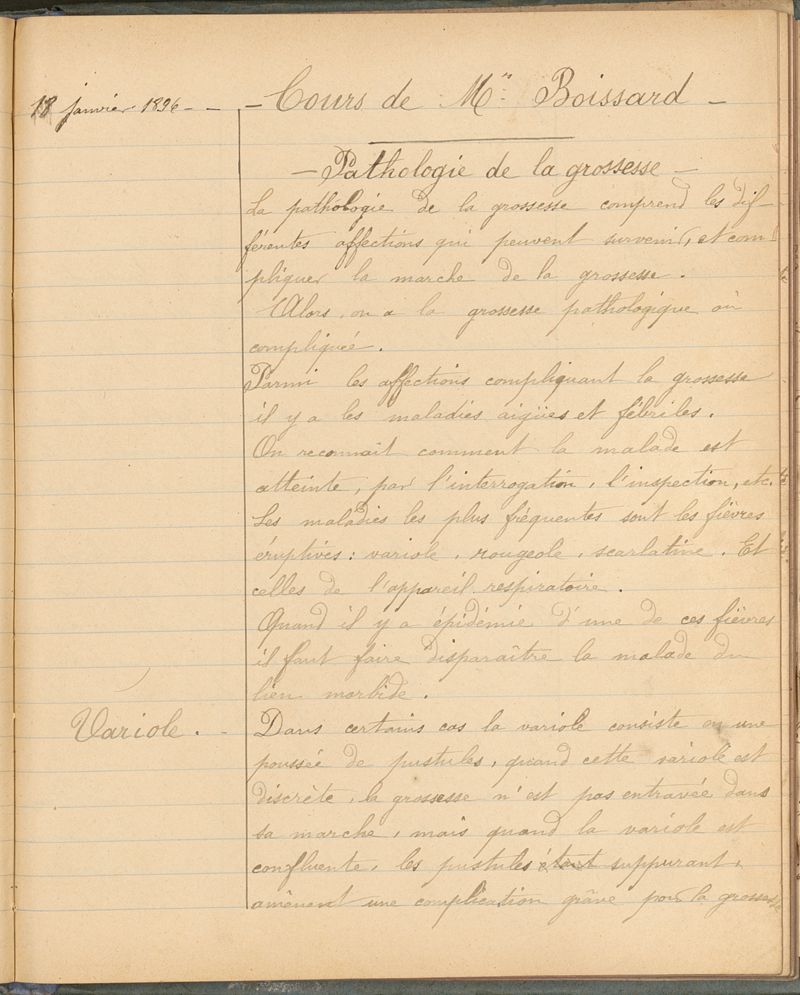 18 janvier 1896 - - - Cours de Mr. Boissard -
- Pathologie de la grossesse -
La pathologie de la grossesse comprend les dif-
férentes affections qui peuvent survenir, et com-
pliquer la marche de la grossesse.
Alors, on a la grossesse pathologique où
compliquée.
Parmi les affections compliquant la grossesse
il y a les maladies aigües et fébriles.
On reconnait comment la malade est
atteinte, par l'interrogation, l'inspection, etc.
Les maladies les plus fréquentes sont les fièvres
éruptives: variole, rougeole, scarlatine. Et
celles de l'appareil respiratoire.
Quand il y a épidémie d'une de ces fièvres
il faut faire disparaître la malade du
lieu morbide.
Variole. - Dans certains cas la variole consiste en une
poussée de pustules, quand cette variole est
discrète, la grossesse n'est pas entravée dans
sa marche, mais quand la variole est
confluente, les pustules étant suppurant,
amènent une complication grâve pour la grossesse